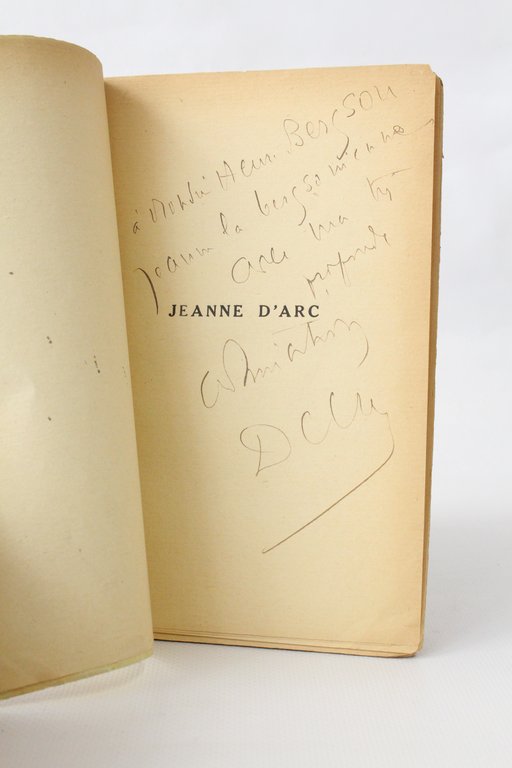 à Monsieur Henri Bergson
Jeanne la bergsonienne
avec ma très
profonde
JEANNE D'ARC
admiration